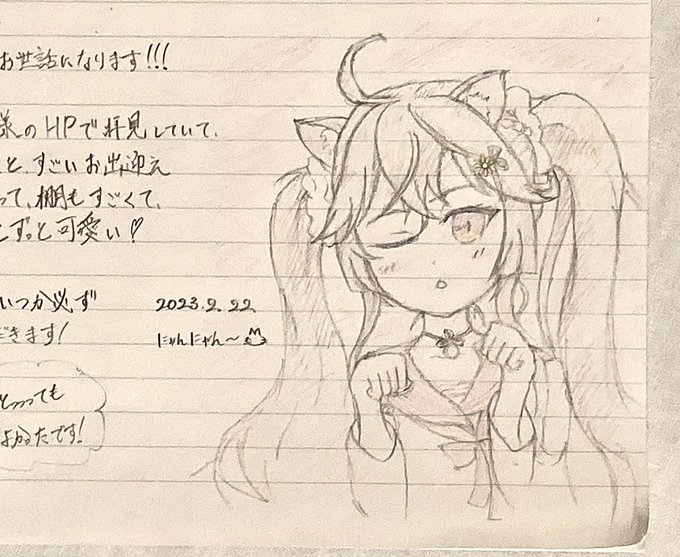 お世話になります!!!
様のHPで拝見していて、
と、すごいお出迎え
って、棚もすごくて、
とずっと可愛い♡
いつか必ず
だきます!
2023.2.22
にゃんにゃん〜
とってても
よかったです!